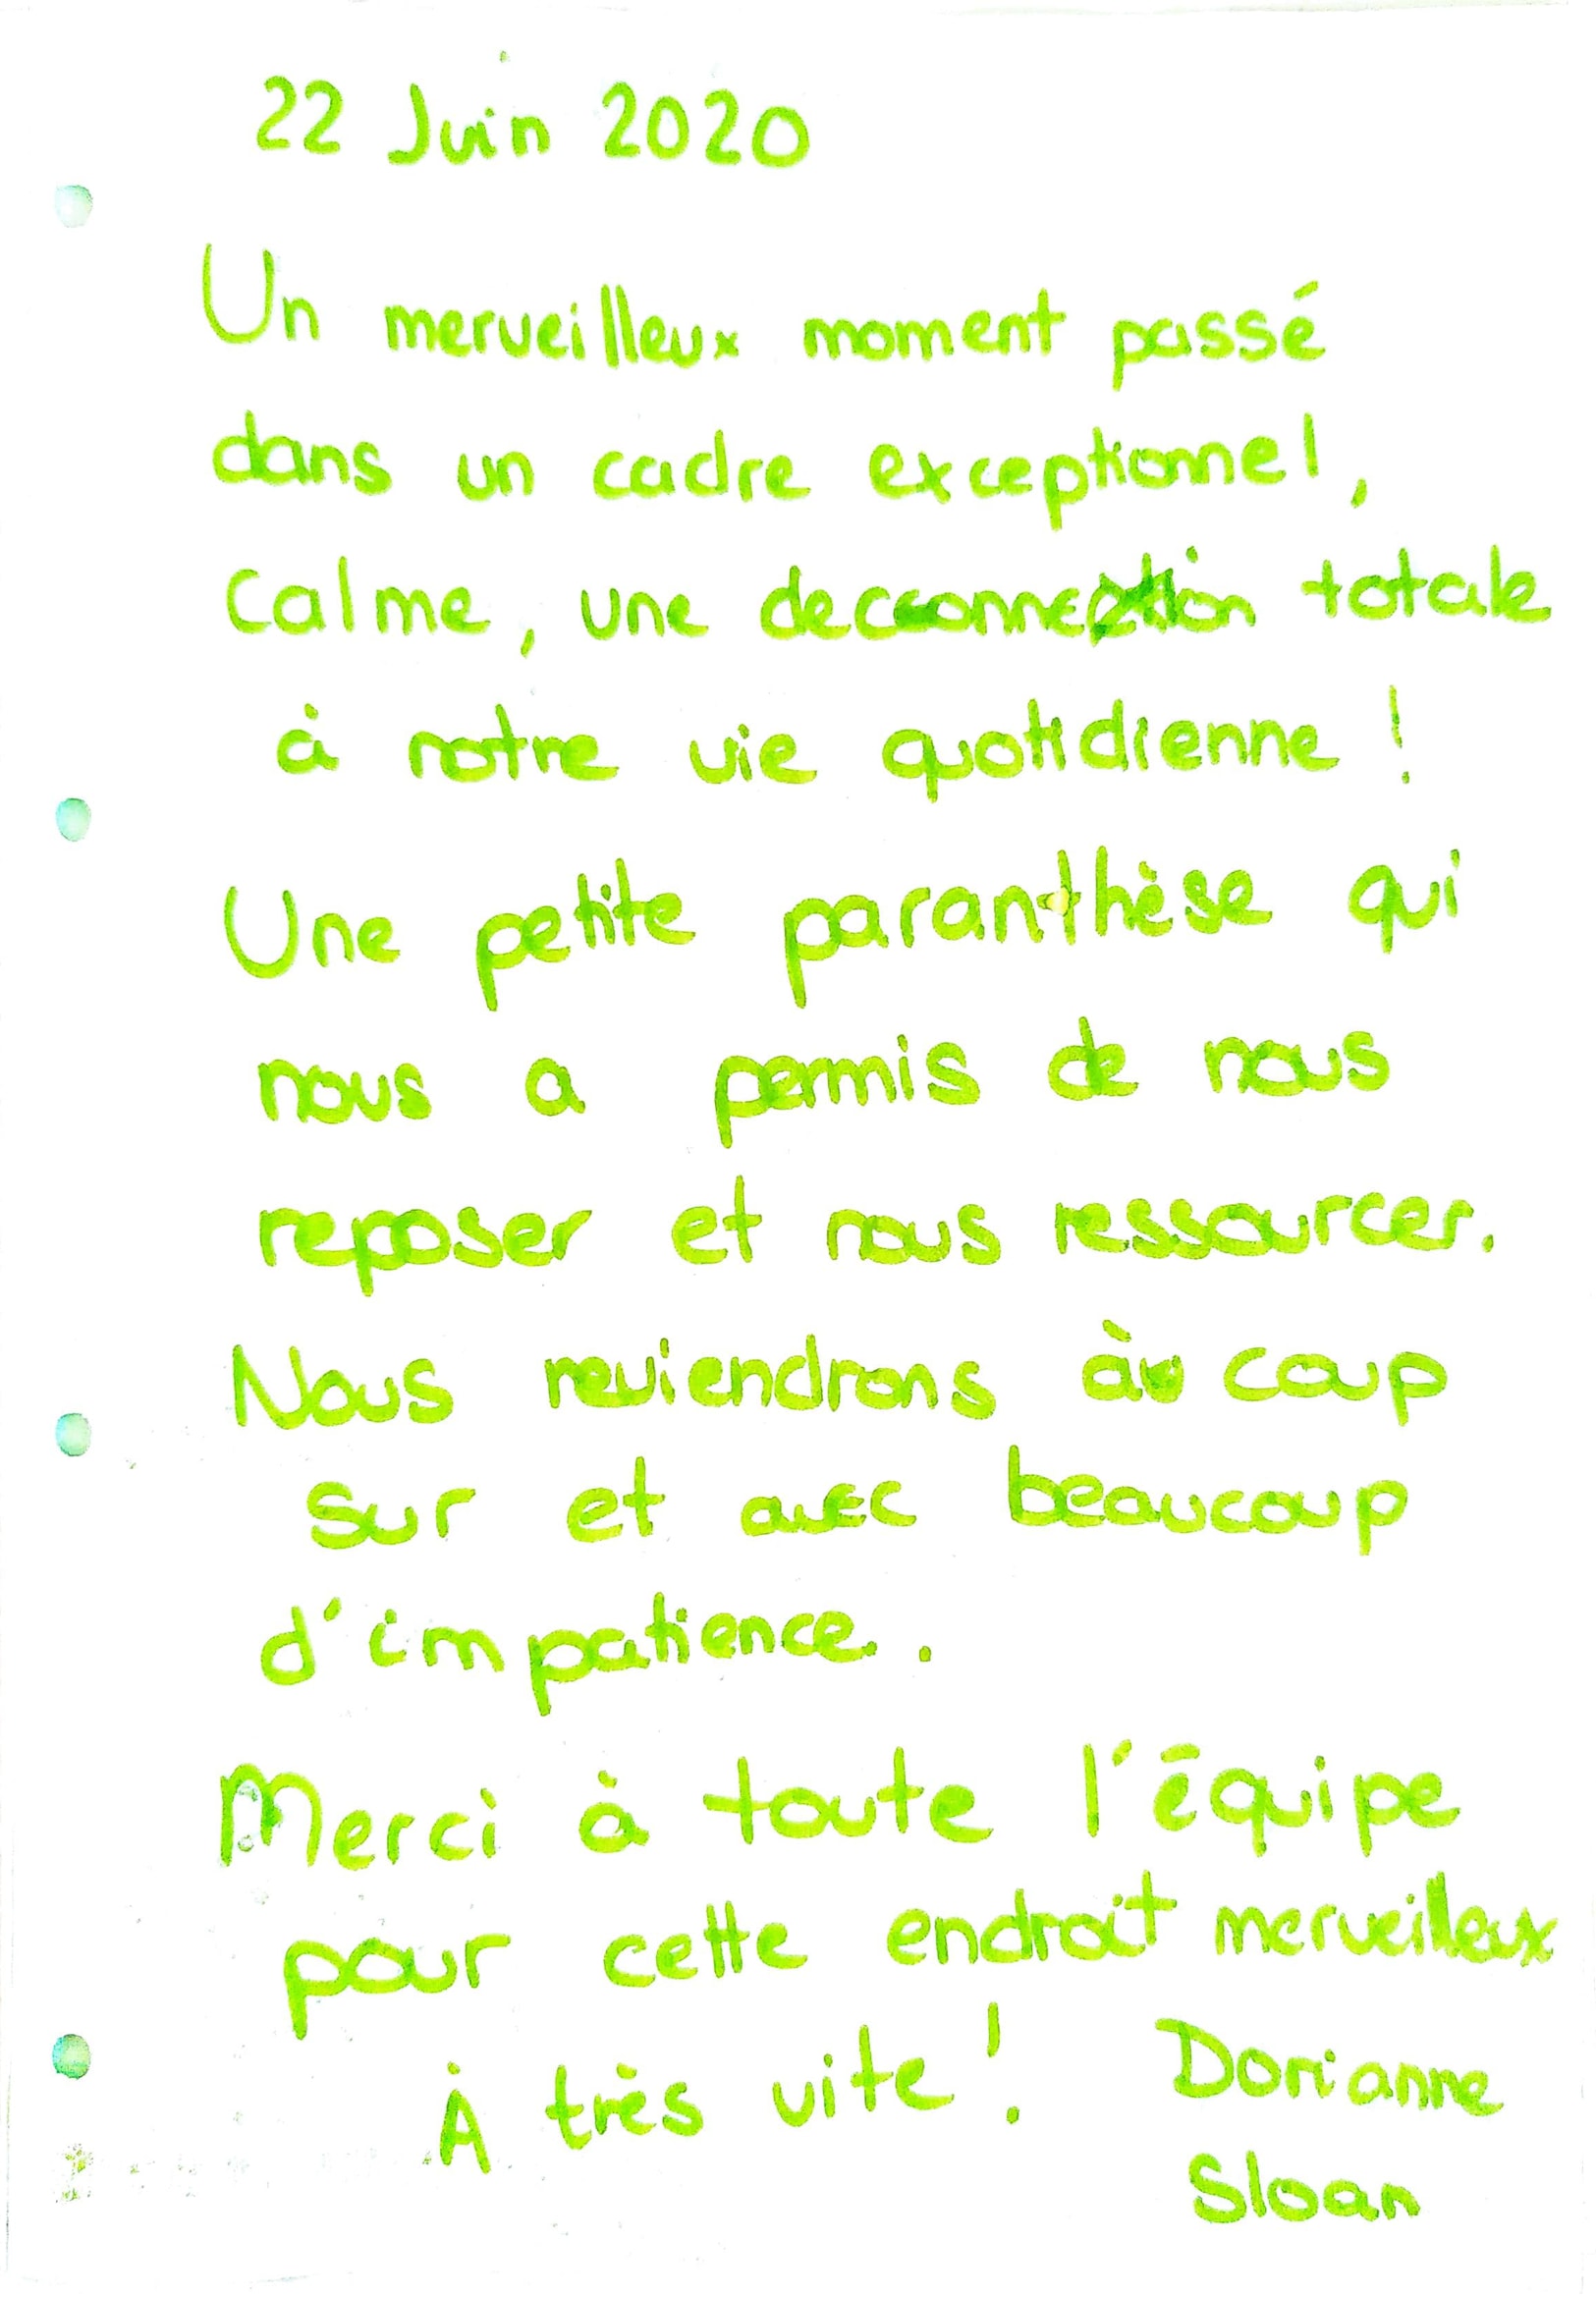 22 Juin 2020
Un merveilleux moment passé
dans un cadre exceptionnel,
Calme, une deconnection totale
à notre vie quotidienne !
Une petite paranthèse qui
nous a permis de nous
reposer et nous ressourcer.
Nous reviendrons à coup
sur et avec beaucoup
d'impatience.
Merci à toute l'équipe
pour cette endroit merveilleux
À très vite ! Dorianne
Sloan